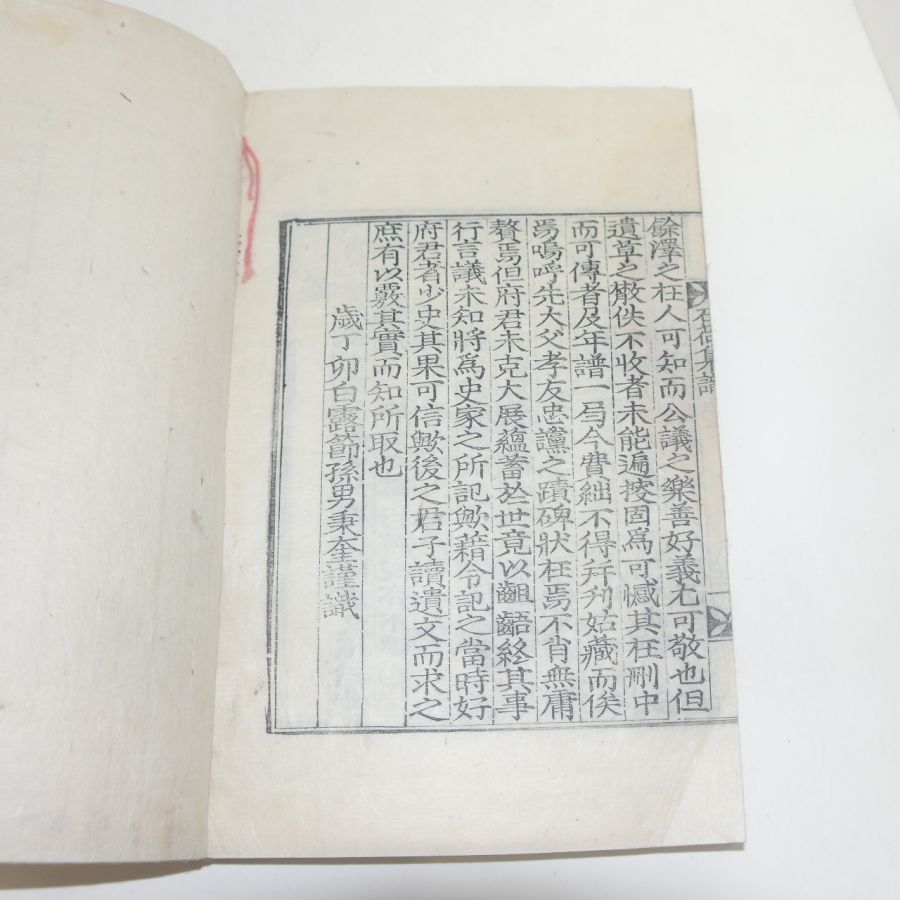 餘澤之在人可知而公議之樂善好義尤可敬也但
遺草之散佚不收者未能遍搜固爲可憾其在刪中
而可傳者及年譜一局今費絀不得幷刋姑藏而俟
焉嗚呼先大父孝友忠讜之蹟碑狀在焉不肖無庸
贅焉但府君未克大展蘊蓄於世竟以齟齬終其事
行言議未知將爲史家之所記歟藉令記之當時好
府君者少史其果可信歟後之君子讀遺文而求之
庶有以覈其實而知所取也
歲丁卯白露節孫男秉奎謹識